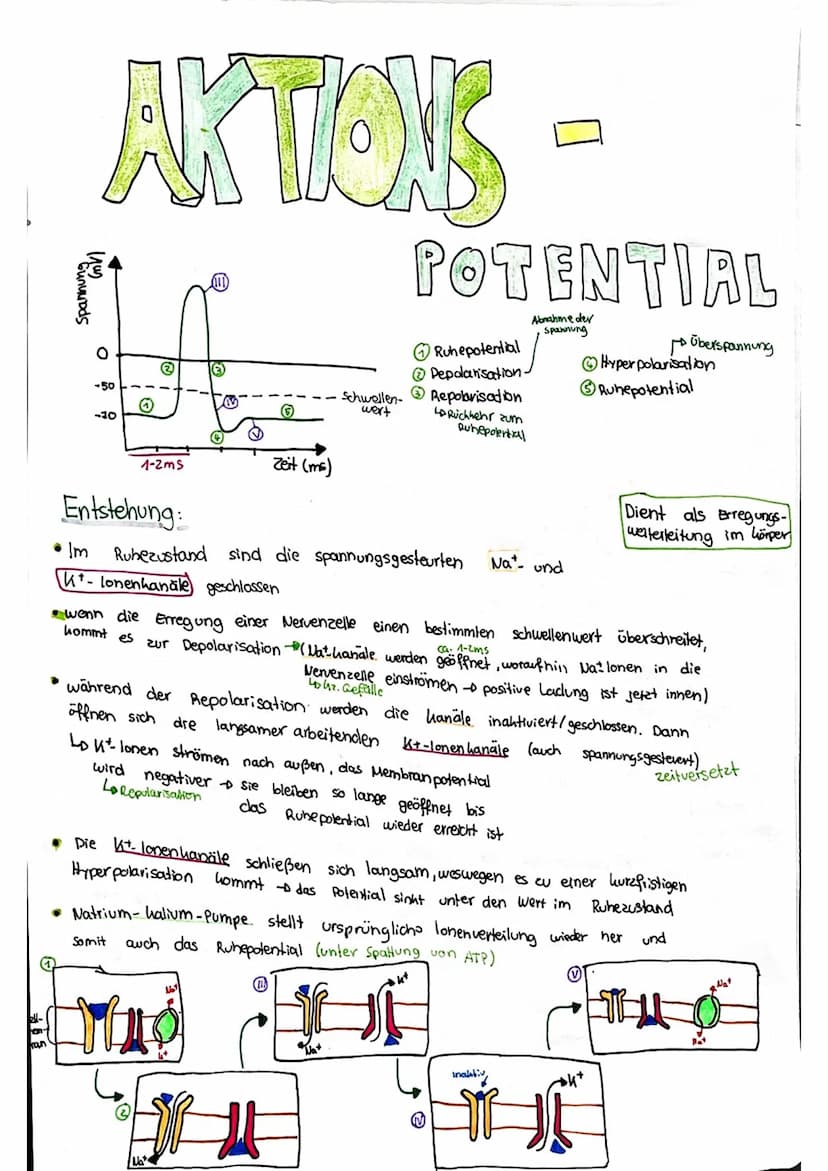 AKTIONS-
POTENTIAL
Spannung (mV)
0
-50
-70
Schwellen-
wert
1-2ms
Zeit (ms)
① ② ③ ④ ⑤
III IV V
① Ruhepotential
② Depolarisation
Abnahme der
Spannung
③ Repolarisation
↳ Rückkehr zum
Ruhepotential
→ Überspannung
④ Hyperpolarisation
⑤ Ruhepotential
Entstehung:
Dient als Erregungs-
weiterleitung im Körper
• Im Ruhezustand sind die spannungsgesteurten Na⁺- und
K⁺-Ionenkanäle geschlossen
• wenn die Erregung einer Nervenzelle einen bestimmten schwellenwert überschreitet,
kommt es zur Depolarisation → (Na⁺-kanäle werden geöffnet, woraufhin Na⁺Ionen in die
ca. 1-2ms
Nervenzelle einströmen → positive Ladung ist jetzt innen)
↳ Gefälle
• während der Repolarisation werden die kanäle inaktiviert/geschlossen. Dann
öffnen sich die langsamer arbeitenden K+-Ionenkanäle (auch spannungsgesteuert)
zeitversetzt
↳ K⁺-Ionen strömen nach außen, das Membranpotential
wird negativer → sie bleiben so lange geöffnet bis
↳ Repolarisation
das Ruhepotential wieder erreicht ist
• Die K⁺-Ionenkanäle schließen sich langsam, weswegen es zu einer kurzfistigen
Hyperpolarisation kommt → das Potential sinkt unter den Wert im Ruhezustand
• Natrium-kalium-Pumpe stellt ursprüngliche Ionenverteilung wieder her und
somit auch das Ruhepotential (unter Spaltung von ATP)
①
Na⁺
K⁺
②
Na⁺
III
K⁺
Na⁺
IV
inaktiv
K⁺
V
Na⁺